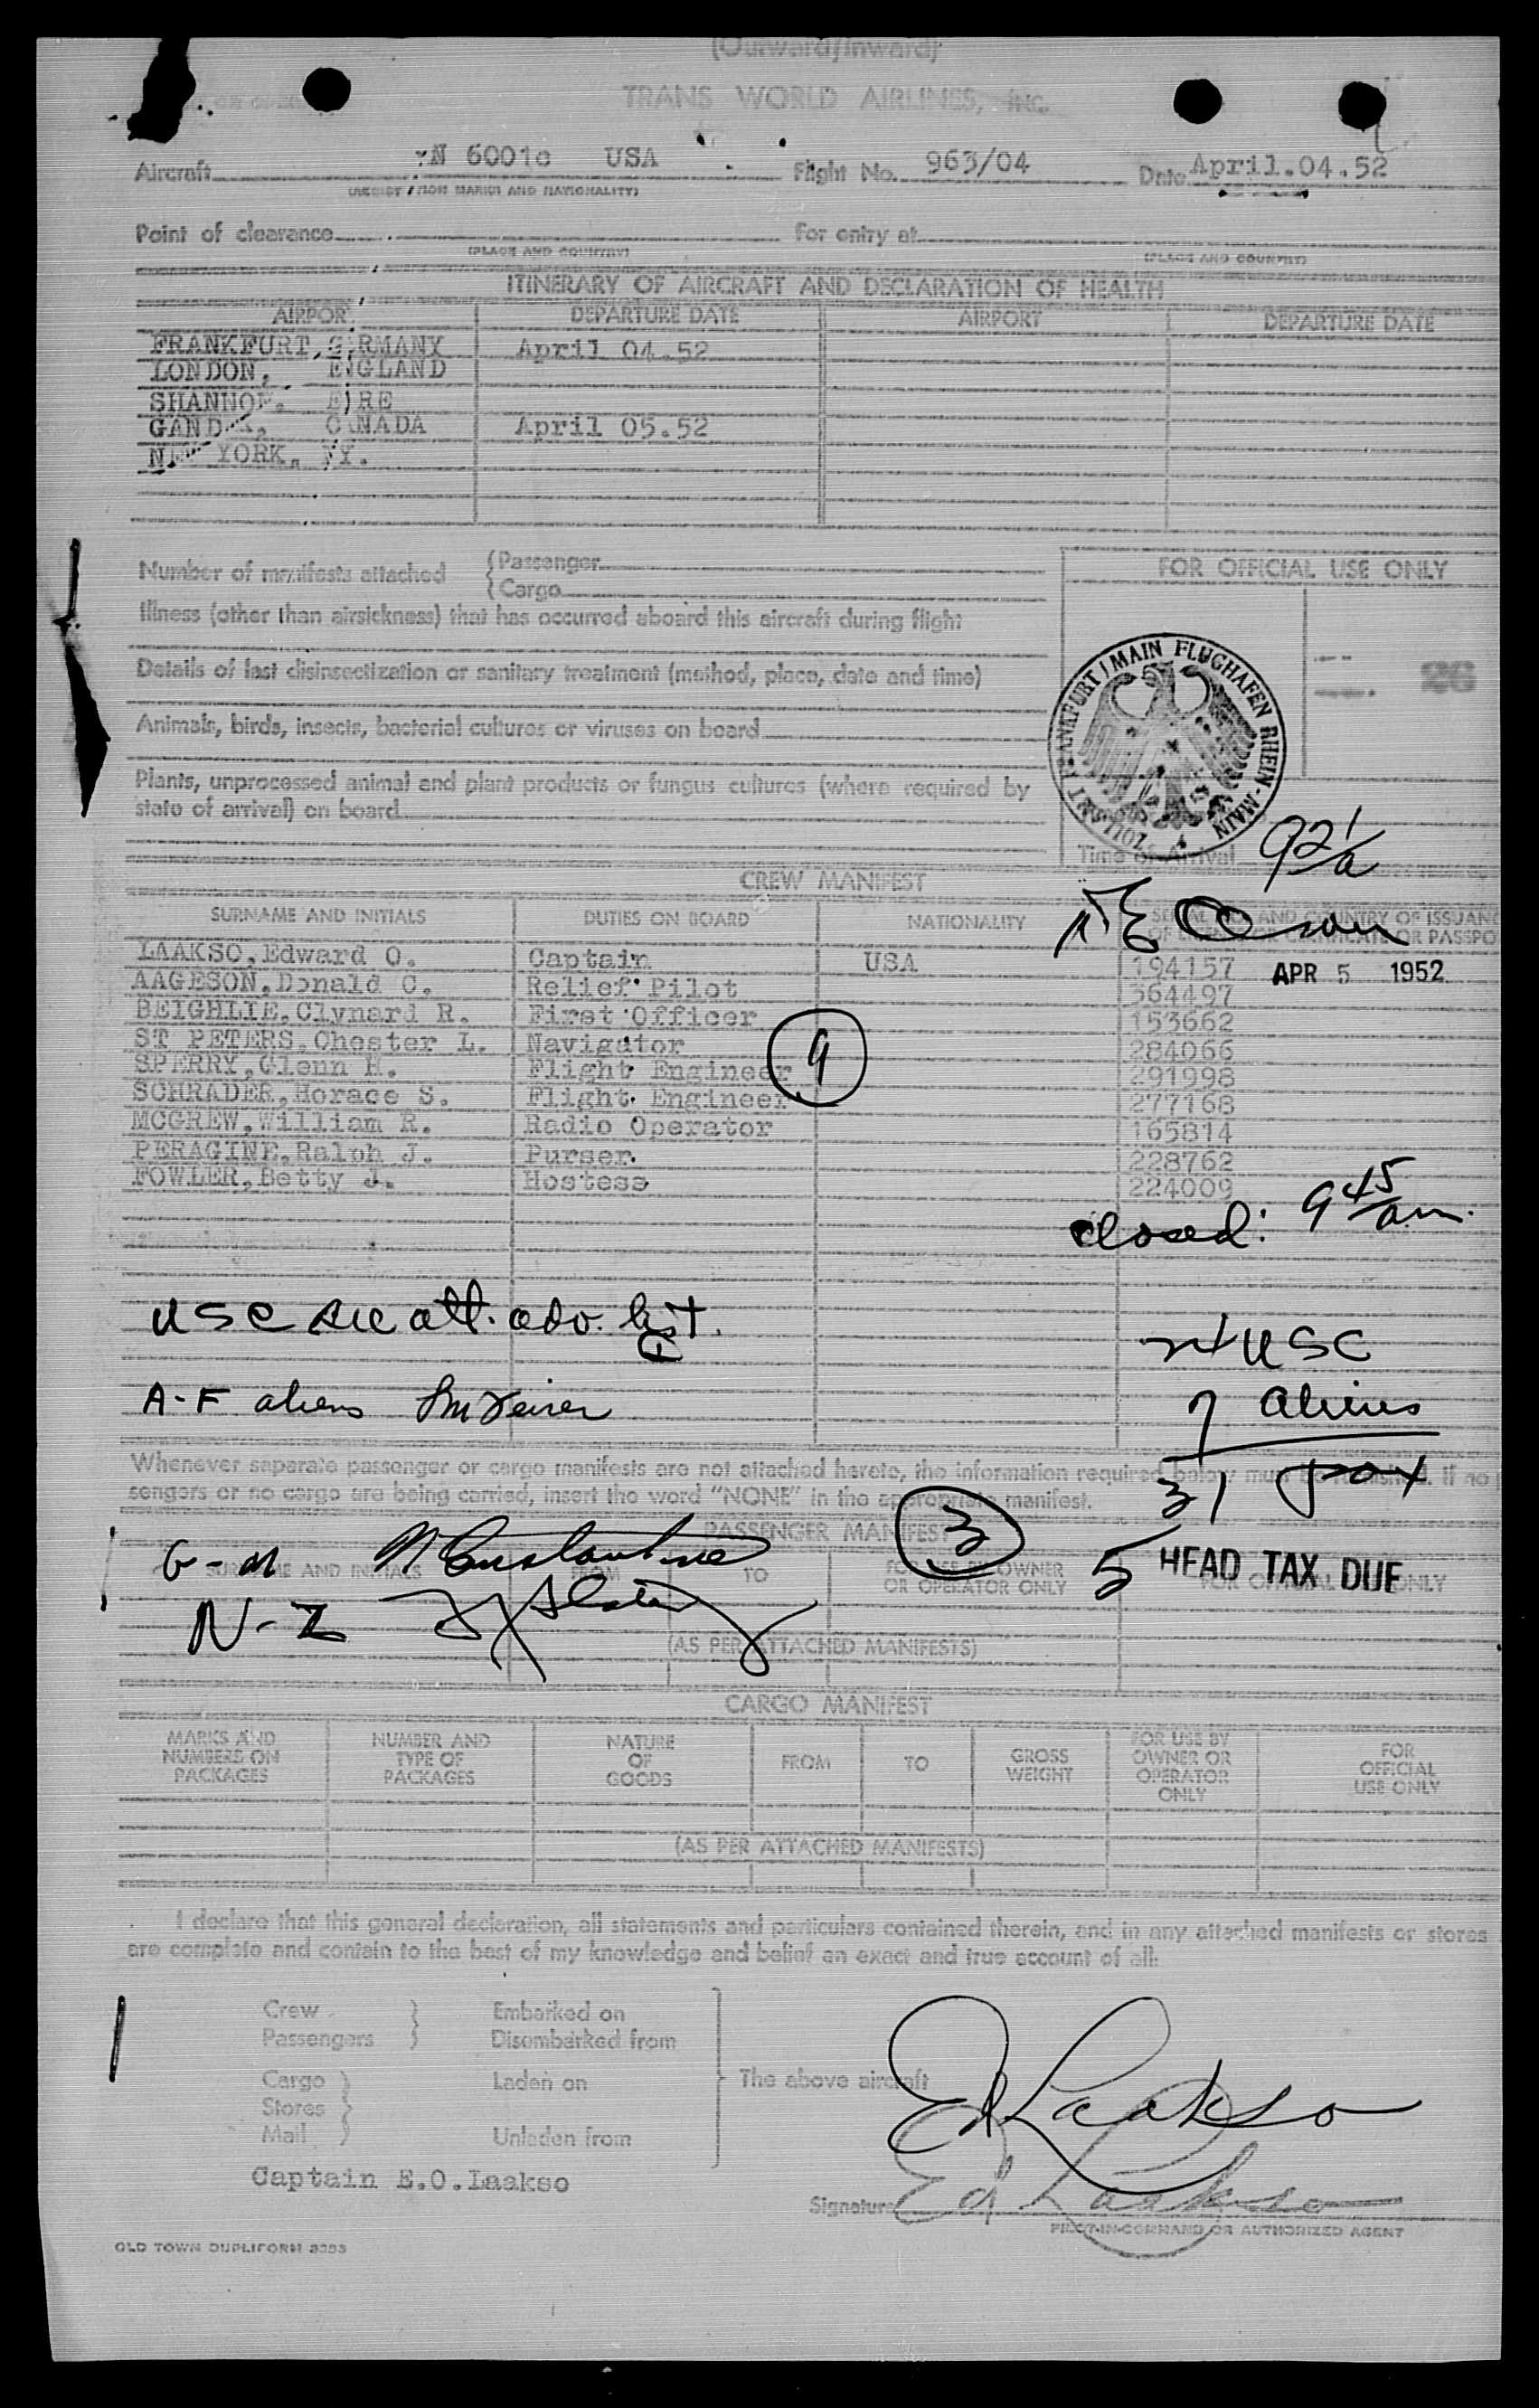 (Outward/Inward)
TRANS WORLD AIRLINES, INC.
Aircraft N 6001c USA Flight No. 963/04 Date April.04.52
(REGIST'TION MARKS AND NATIONALITY)
Point of clearance For entry at
(PLACE AND COUNTRY) (PLACE AND COUNTRY)
ITINERARY OF AIRCRAFT AND DECLARATION OF HEALTH
AIRPORT DEPARTURE DATE AIRPORT DEPARTURE DATE
FRANKFURT, GERMANY April 04.52
LONDON, ENGLAND
SHANNON, EIRE
GANDER, CANADA April 05.52
NEW YORK, NY.
Number of manifests attached { Passenger
{ Cargo
FOR OFFICIAL USE ONLY
Illness (other than airsickness) that has occurred aboard this aircraft during flight
Details of last disinsectization or sanitary treatment (method, place, date and time)
26
ZOLLAMT FRANKFURT/MAIN FLUGHAFEN RHEIN-MAIN
Animals, birds, insects, bacterial cultures or viruses on board
Plants, unprocessed animal and plant products or fungus cultures (where required by
state of arrival) on board
Time of Arrival
CREW MANIFEST
SURNAME AND INITIALS DUTIES ON BOARD NATIONALITY SERIAL NO. AND COUNTRY OF ISSUANC
OF LICENSE OR CERTIFICATE OR PASSPO
LAAKSO, Edward O. Captain USA 194157 APR 5 1952
AAGESON, Donald C. Relief Pilot 364497
BEIGHLIE, Clynard R. First Officer 153662
ST PETERS, Chester L. Navigator 284066
SPERRY, Glenn H. Flight Engineer 9 291998
SCHRADER, Horace S. Flight Engineer 277168
MCGREW, William R. Radio Operator 165814
PERAGINE, Ralph J. Purser 228762
FOWLER, Betty J. Hostess 224009
closed: 9 45 am.
USC see att. adv. list.
24 USC
A-F aliens
7 aliens
Whenever separate passenger or cargo manifests are not attached hereto, the information required below must be furnished. If no p
sengers or no cargo are being carried, insert the word "NONE" in the appropriate manifest.
31 pax
PASSENGER MANIFEST
3
G-M N Constantine
5 HEAD TAX DUE
SURNAME AND INITIALS FROM TO FOR USE BY OWNER OR OPERATOR ONLY FOR OFFICIAL USE ONLY
N-Z
(AS PER ATTACHED MANIFESTS)
CARGO MANIFEST
MARKS AND NUMBERS ON PACKAGES NUMBER AND TYPE OF PACKAGES NATURE OF GOODS FROM TO GROSS WEIGHT FOR USE BY OWNER OR OPERATOR ONLY FOR OFFICIAL USE ONLY
(AS PER ATTACHED MANIFESTS)
I declare that this general declaration, all statements and particulars contained therein, and in any attached manifests or stores
are complete and contain to the best of my knowledge and belief an exact and true account of all:
Crew Embarked on
Passengers Disembarked from
Cargo Laden on The above aircraft
Stores
Mail Unladen from
Ed Laakso
Captain E.O.Laakso
Signature Ed Laakso
PILOT-IN-COMMAND OR AUTHORIZED AGENT
OLD TOWN DUPLIFORM 8393